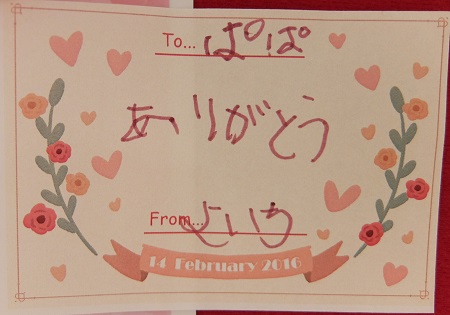 To... ぱぱ
ありがとう
From... よいち
14 February 2016